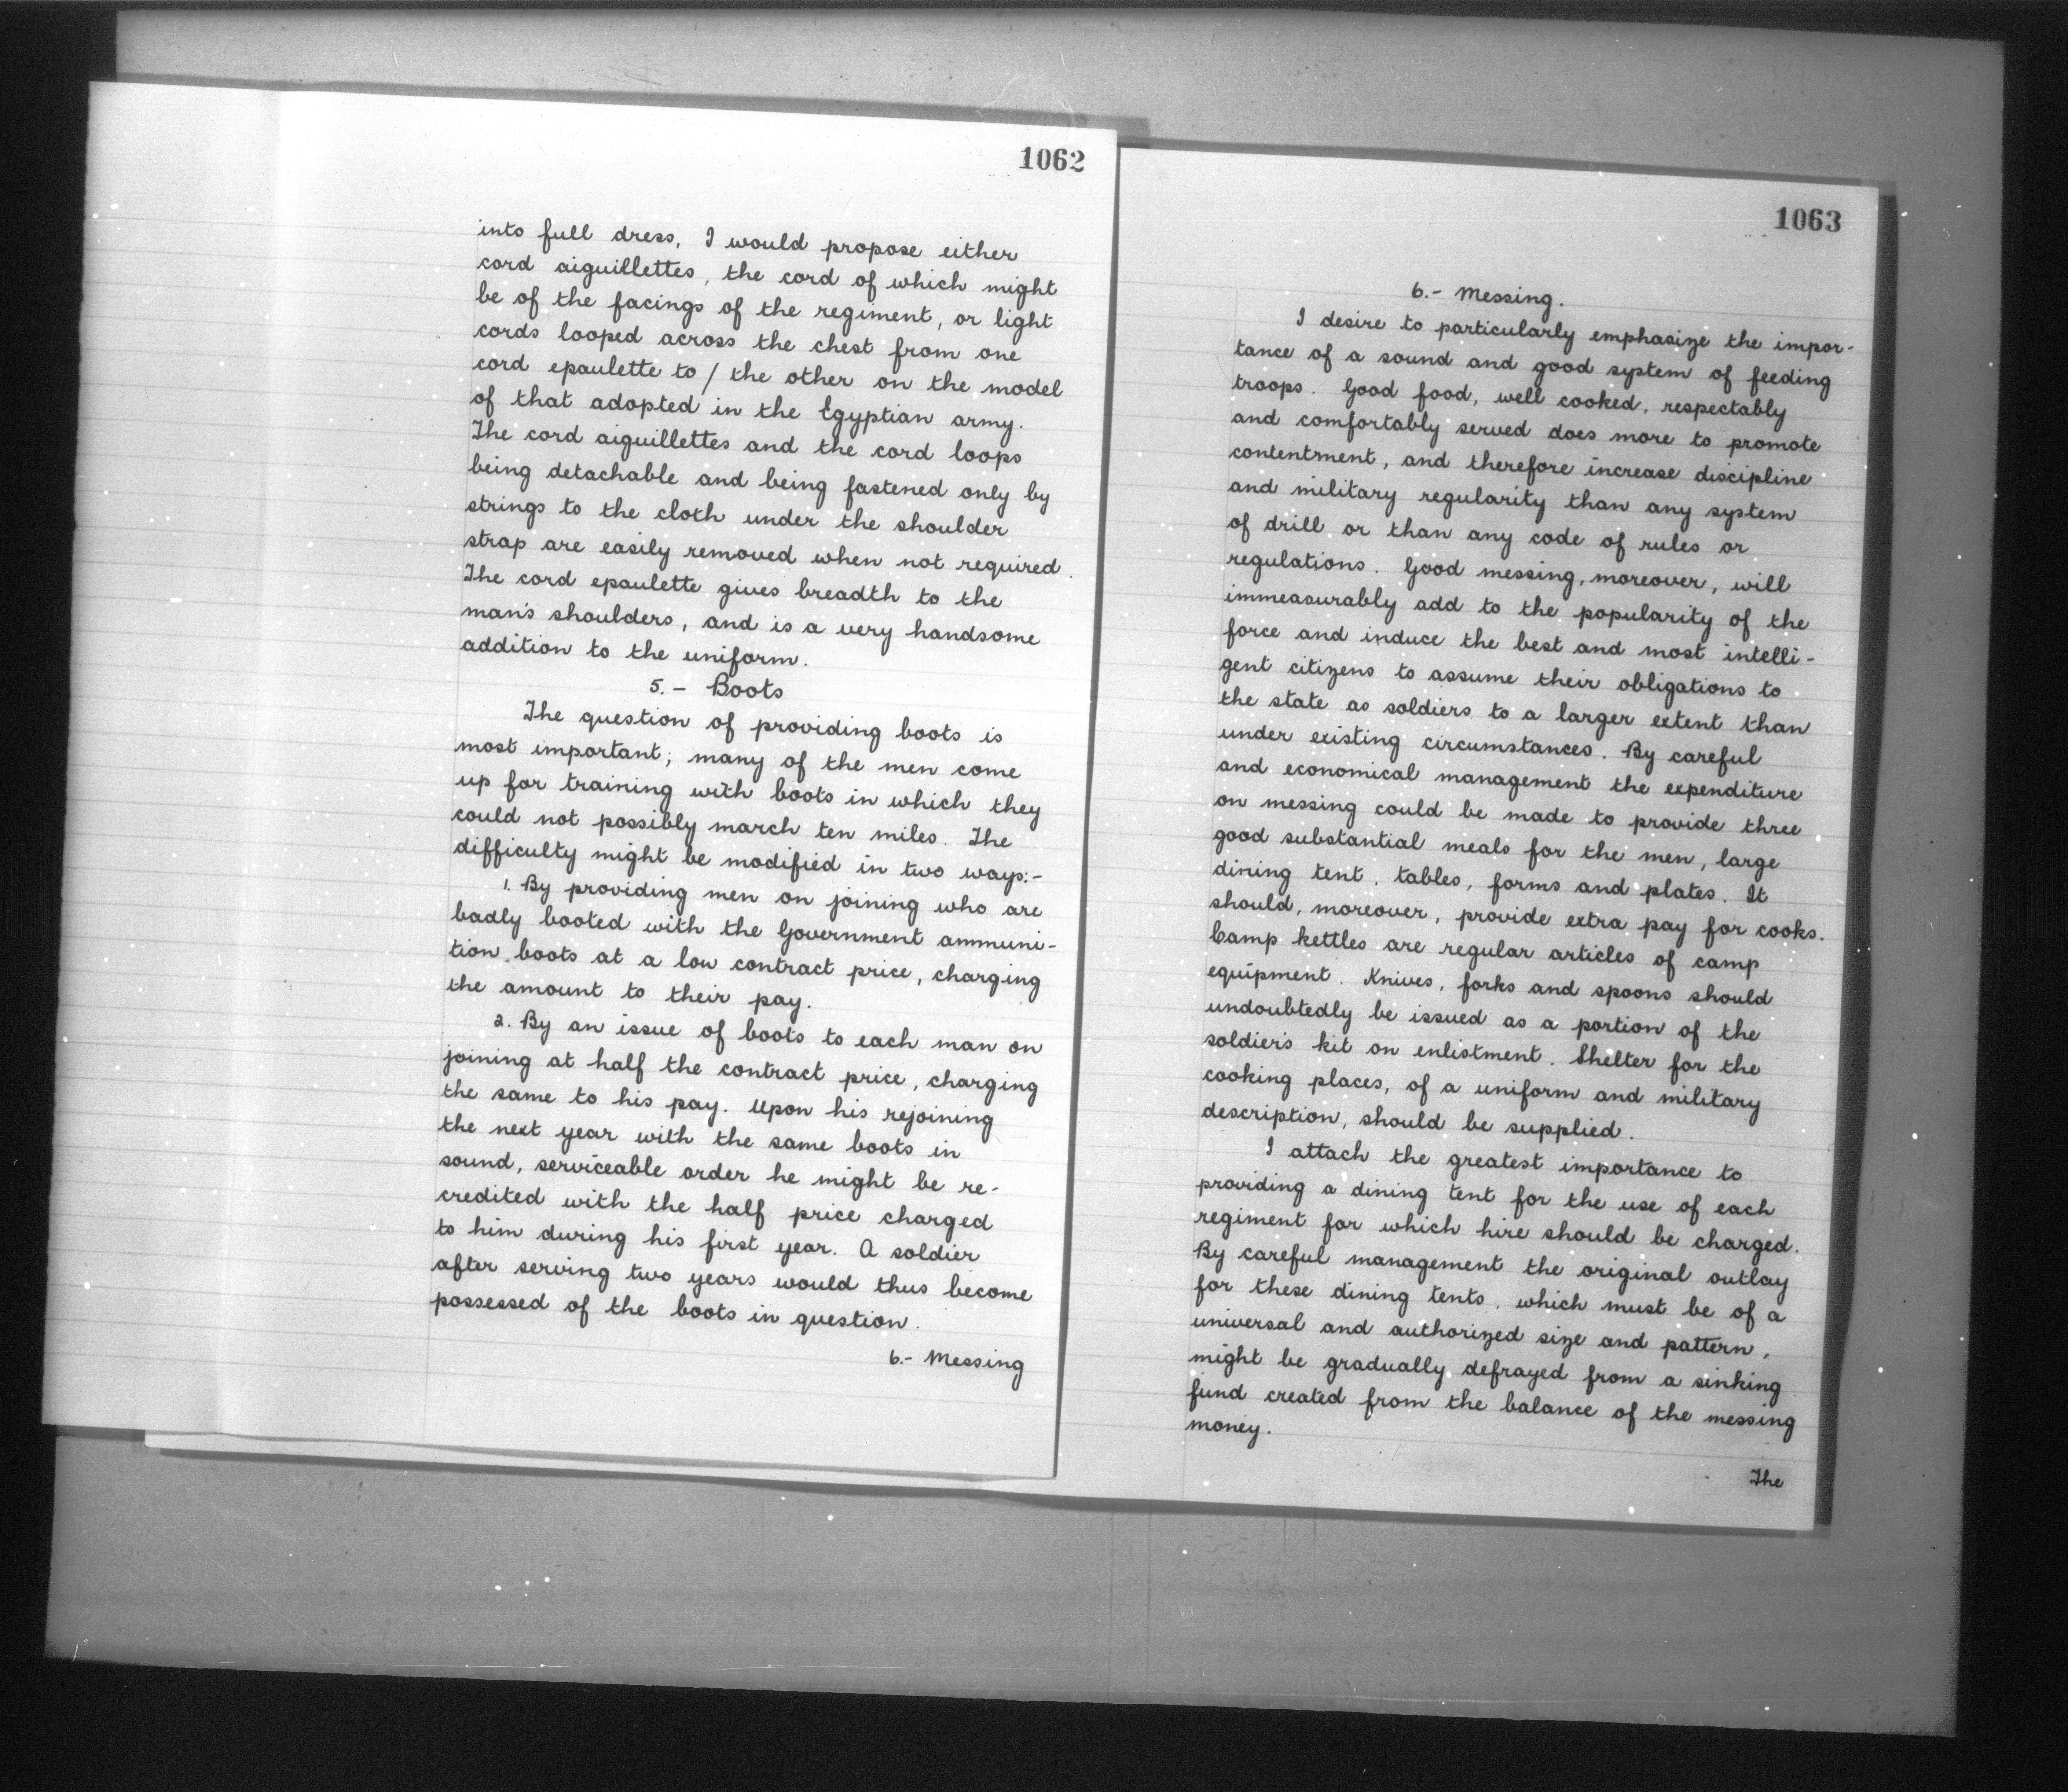 1062
into full dress, I would propose either
cord aiguillettes, the cord of which might
be of the facings of the regiment, or light
cords looped across the chest from one
cord epaulette to / the other on the model
of that adopted in the Egyptian army.
The cord aiguillettes and the cord loops
being detachable and being fastened only by
strings to the cloth under the shoulder
strap are easily removed when not required.
The cord epaulette gives breadth to the
man's shoulders, and is a very handsome
addition to the uniform.
5. - Boots
The question of providing boots is
most important; many of the men come
up for training with boots in which they
could not possibly march ten miles. The
difficulty might be modified in two ways:-
1. By providing men on joining who are
badly booted with the Government ammuni-
tion boots at a low contract price, charging
the amount to their pay.
2. By an issue of boots to each man on
joining at half the contract price, charging
the same to his pay. Upon his rejoining
the next year with the same boots in
sound, serviceable order he might be re-
credited with the half price charged
to him during his first year. A soldier
after serving two years would thus become
possessed of the boots in question.
6.- Messing
1063
6.- Messing.
I desire to particularly emphasize the impor-
tance of a sound and good system of feeding
troops. Good food, well cooked, respectably
and comfortably served does more to promote
contentment, and therefore increase discipline
and military regularity than any system
of drill or than any code of rules or
regulations. Good messing, moreover, will
immeasurably add to the popularity of the
force and induce the best and most intelli-
gent citizens to assume their obligations to
the state as soldiers to a larger extent than
under existing circumstances. By careful
and economical management the expenditure
on messing could be made to provide three
good substantial meals for the men, large
dining tent, tables, forms and plates. It
should, moreover, provide extra pay for cooks.
Camp kettles are regular articles of camp
equipment. Knives, forks and spoons should
undoubtedly be issued as a portion of the
soldier's kit on enlistment. Shelter for the
cooking places, of a uniform and military
description, should be supplied.
I attach the greatest importance to
providing a dining tent for the use of each
regiment for which hire should be charged.
By careful management the original outlay
for these dining tents, which must be of a
universal and authorized size and pattern,
might be gradually defrayed from a sinking
fund created from the balance of the messing
money.
The